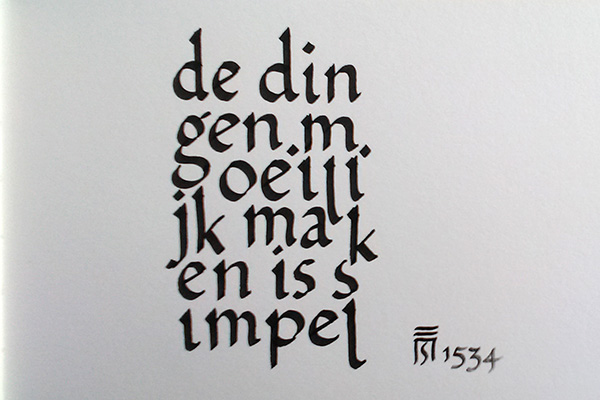 de din
gen m
oeili
jk mak
en is s
impel
1534